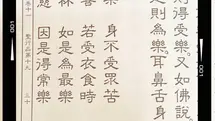 則得受樂又如佛說
之則為樂耳鼻舌身
身不受眾苦
如是為最樂
若愛衣食時
因是得常樂